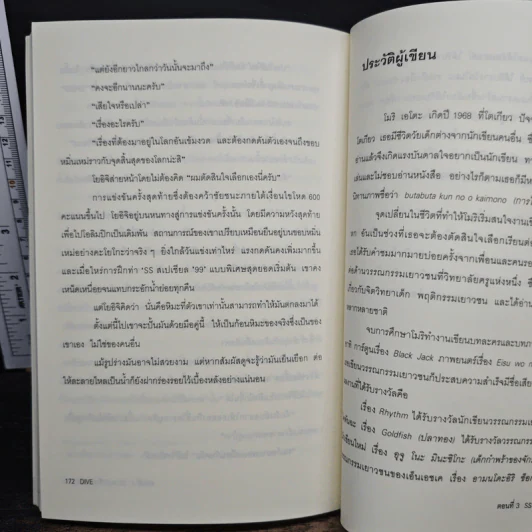 "แต่ยังอีกยาวไกลกว่าวันนั้นจะมาถึง"
"คงจะอีกนานนะครับ"
"เสียใจหรือเปล่า"
"เรื่องอะไรครับ"
"เรื่องที่ต้องมาอยู่ในโลกอันเข้มงวด และต้องกดดันตัวเองจนถึงขอบ
หมิ่นเหม่ราวกับจุดสิ้นสุดของโลกน่ะสิ"
โยอิจิส่ายหน้าโดยไม่ต้องคิด "ผมตัดสินใจเลือกเองนี่ครับ"
การแข่งขันครั้งสุดท้ายซึ่งต้องคว้าชัยชนะภายใต้เงื่อนไขโหด 600
คะแนนขึ้นไป โยอิจิอยู่บนหนทางสู่การแข่งขันครั้งนั้น โดยมีความหวังสุดท้าย
เพื่อไปโอลิมปิกเป็นเดิมพัน สถานการณ์ของเขาเปรียบเหมือนยืนอยู่บนขอบหมิ่น
เหม่อย่างคะโยโกะว่าจริง ๆ ยิ่งใกล้วันแข่งเท่าไหร่ แรงกดดันคงเพิ่มมากขึ้น
และเมื่อไหร่การฝึกท่า "SS สเปเชียล '99" แบบพิเศษสุดยอดเริ่มต้น เขาคง
หนีดเหนื่อยจนแทบกระอักน้ำย่อยทุกคืน
แต่โยอิจิคิดว่า นั่นคือหิมะที่ตัวเขาเท่านั้นสามารถทำให้มันตกลงมาได้
ตั้งแต่นี้ไปเขาจะปั้นมันด้วยมือคู่นี้ ให้เป็นก้อนหิมะของจริงซึ่งเป็นของ
เขาเอง ไม่ใช่ของคนอื่น
แม้รูปร่างมันอาจไม่สวยงาม แต่หากสัมผัสดูจะรู้ว่ามันเย็นเยือก ต่อ
ให้ละลายไหลเป็นน้ำก็ยังฝากร่องรอยไว้เบื้องหลังอย่างแน่นอน
172 DIVE
ประวัติผู้เขียน
โมริ เอโตะ เกิดปี 1968 ที่โตเกียว
โตเกียว เธอมีชีวิตวัยเด็กต่างจากนักเขียนคนอื่น
อ่านแล้วจึงเกิดแรงบันดาลใจอยากเป็นนักเขียน
เล่นและไม่ชอบอ่านหนังสือ อย่างไรก็ตามเธอก็
นิทานภาพชื่อว่า butabuta kun no o kaimono
จุดเปลี่ยนในชีวิตที่ทำให้โมริเริ่มสนใจงานเขียน
อันเป็นช่วงที่เธอจะต้องตัดสินใจเลือกเรียนต่อ
ได้รับคำชมมากมายบ่อยครั้งจากเพื่อนและ
ต่อด้านวรรณกรรมเยาวชนที่วิทยาลัยครูแห่งหนึ่ง
เกี่ยวกับจิตวิทยาเด็ก พฤติกรรมเยาวชน และได้อ่าน
หลากหลายชาติ
จบการศึกษาโมริทำงานเขียนบทละครและบท
การ์ตูนเรื่อง Black Jack ภาพยนตร์เรื่อง
วรรณกรรมเยาวชนก็ประสบความสำเร็จมีชื่อเสียง
ได้รับรางวัลคือ
เรื่อง Rhythm ได้รับรางวัลนักเขียนวรรณกรรม
เรื่อง Goldfish (ปลาทอง) ได้รับรางวัลวรรณกรรม
เรื่อง
วรรณกรรมเยาวชนของเอ็นเอชเค เรื่อง
ตอนที่ 3